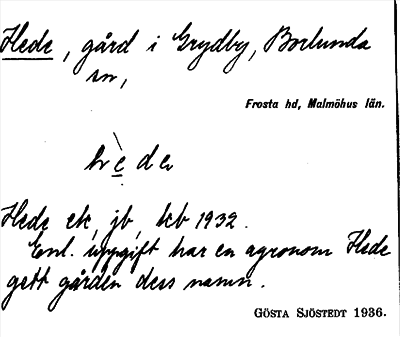 Hede, gård i Grydby, Borlunda
sn,
Frosta hd, Malmöhus län.
Hede ek, jb, kb 1932.
Enl. uppgift har en agronom Hede
gett gården dess namn.
GÖSTA SJÖSTEDT 1936.